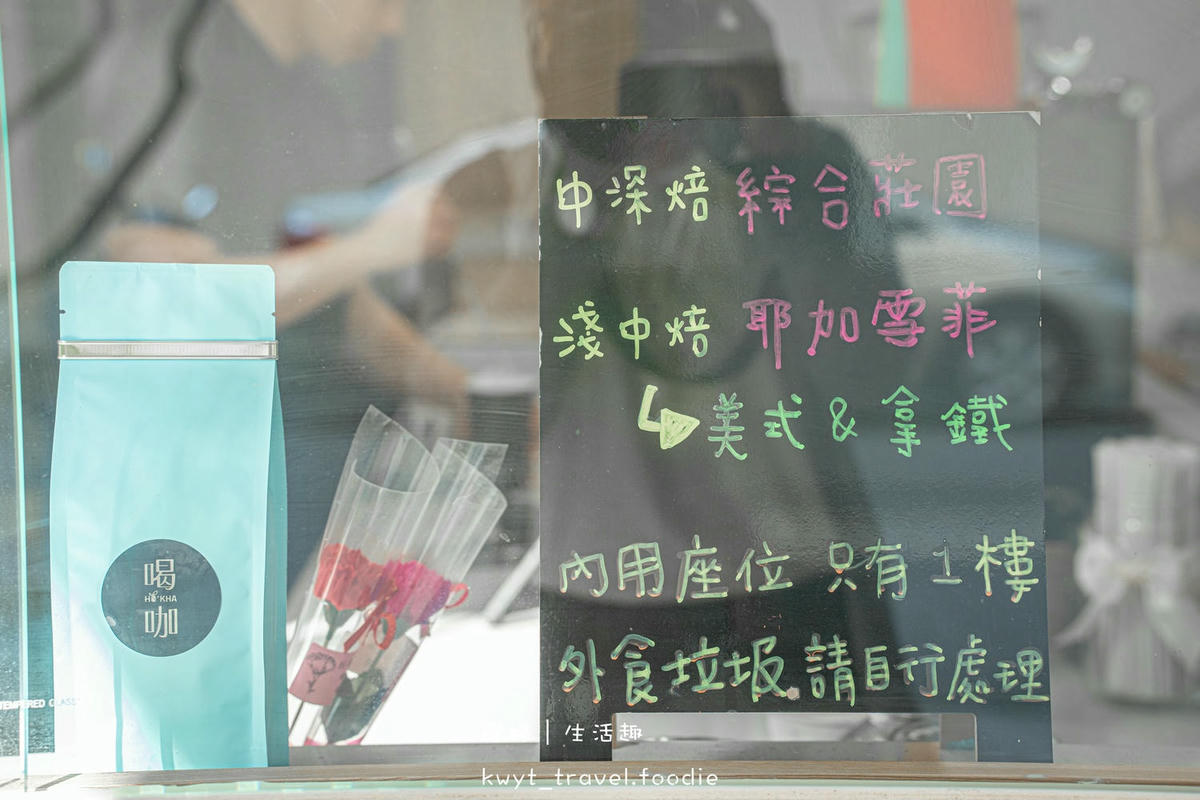 中深焙 綜合莊園
淺中焙 耶加雪菲
美式 & 拿鐵
內用座位 只有1樓
外食垃圾 請自行處理
喝
HĒ KHA
咖
TEMPERED GLASS
生活趣
kwyt_travel.foodie